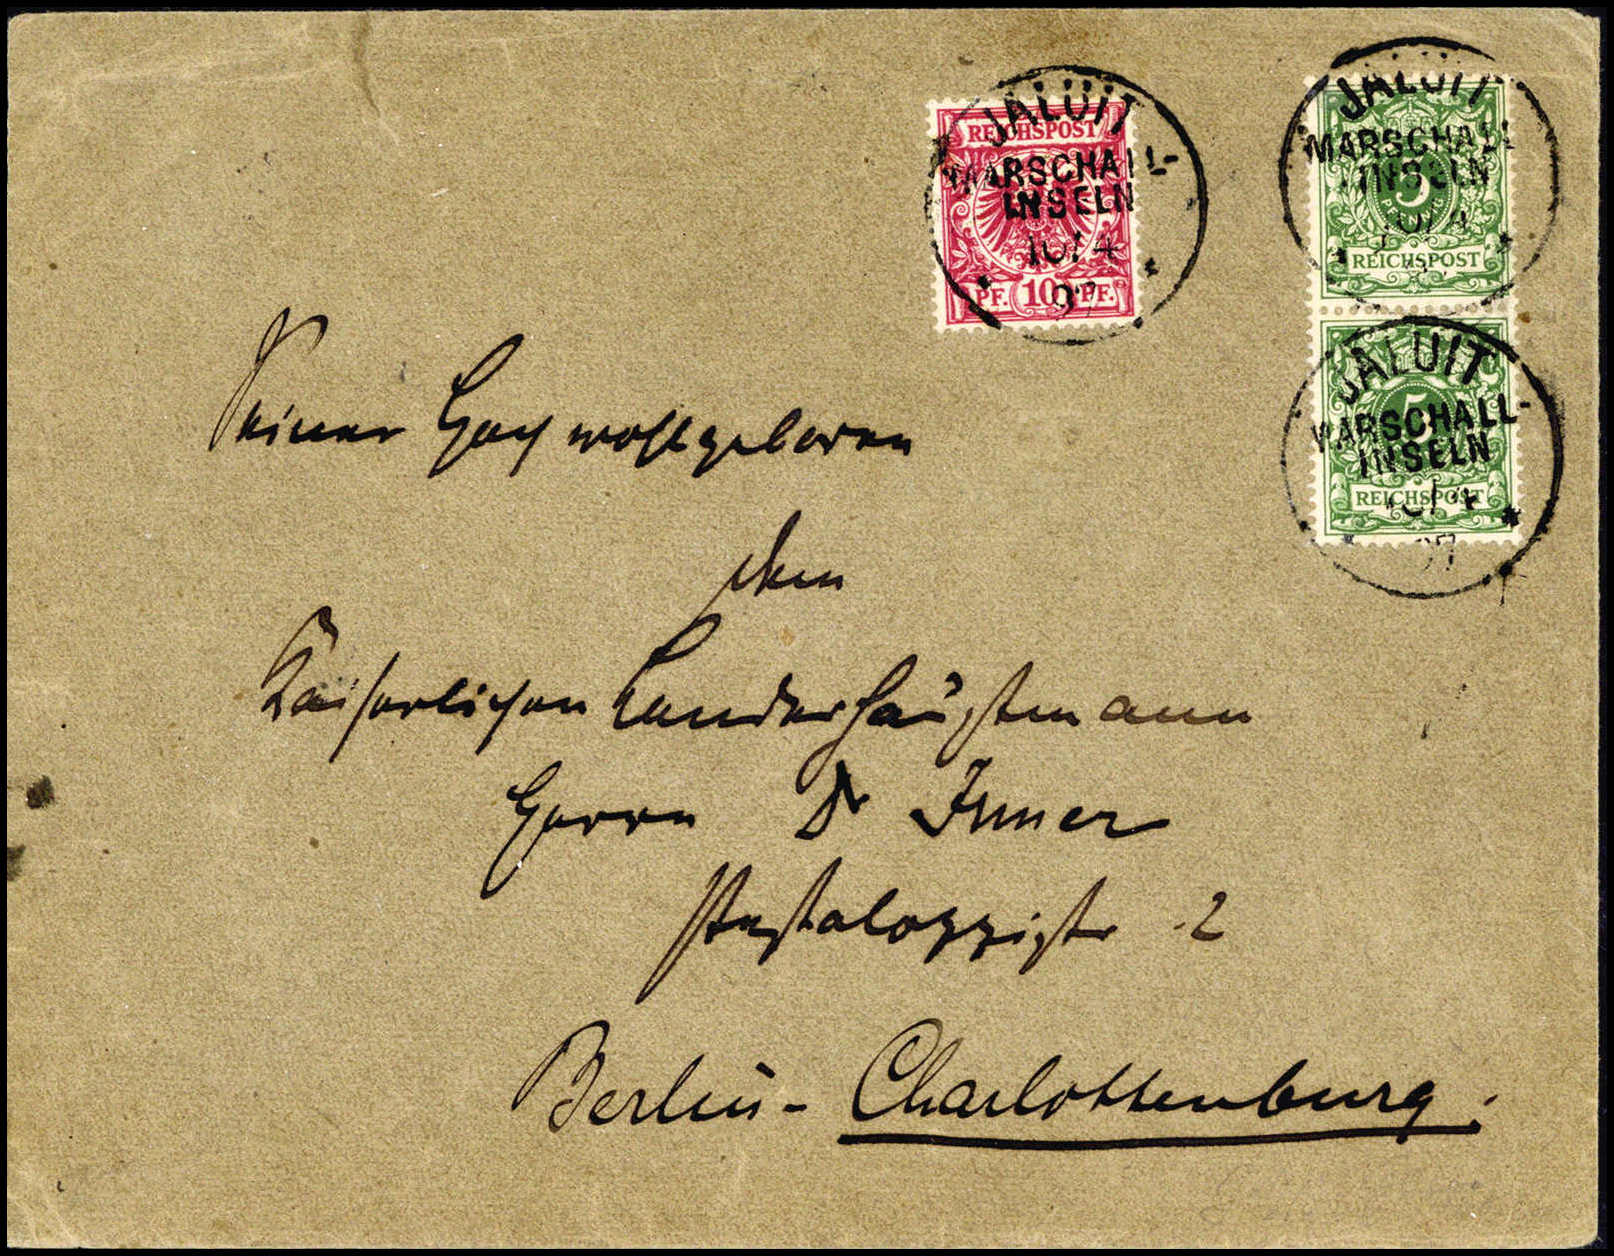 JALUIT
MARSCHALL-
INSELN
10/4
97
REICHSPOST
PF. 10 PF.
JALUIT
MARSCHALL
INSELN
10/4
5
REICHSPOST
JALUIT
MARSCHALL-
INSELN
10/4
97
5
REICHSPOST
Seiner Hochwohlgeboren
dem
Kaiserlichen Landeshauptmann
Herrn Dr Irmer
Pestalozzistr 2
Berlin - Charlottenburg.